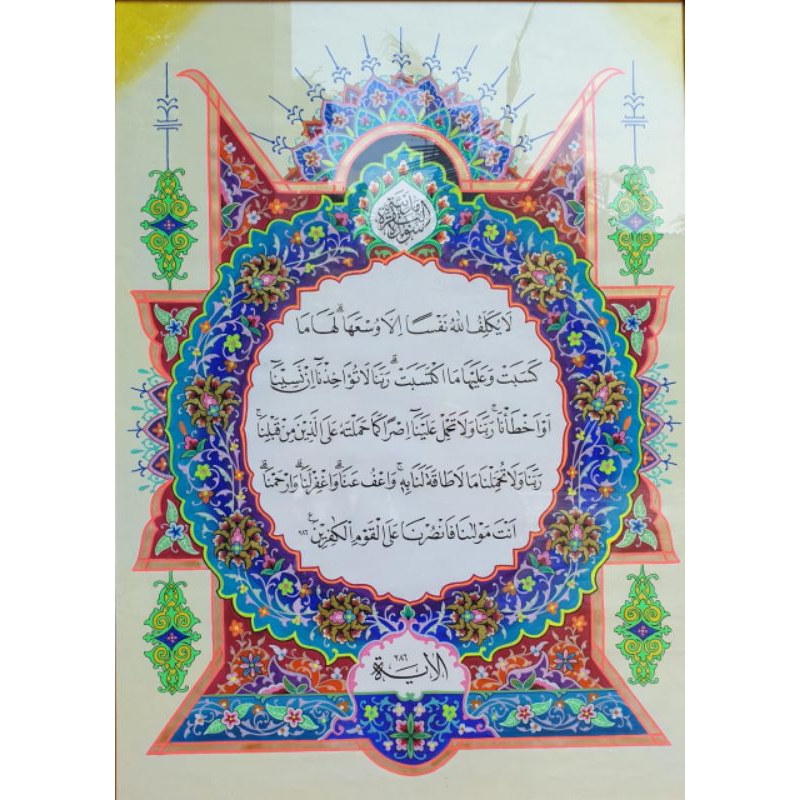 السورة البقرة مدنية
لَا يُكَلِّفُ اللهُ نَفْسًا اِلَّا وُسْعَهَاۗ لَهَا مَا
كَسَبَتْ وَعَلَيْهَا مَا اكْتَسَبَتْۗ رَبَّنَا لَا تُؤَاخِذْنَآ اِنْ نَّسِيْنَآ
اَوْ اَخْطَأْنَاۚ رَبَّنَا وَلَا تَحْمِلْ عَلَيْنَآ اِصْرًا كَمَا حَمَلْتَهٗ عَلَى الَّذِيْنَ مِنْ قَبْلِنَاۚ
رَبَّنَا وَلَا تُحَمِّلْنَا مَا لَا طَاقَةَ لَنَا بِهٖۚ وَاعْفُ عَنَّاۗ وَاغْفِرْ لَنَاۗ وَارْحَمْنَاۗ
اَنْتَ مَوْلٰىنَا فَانْصُرْنَا عَلَى الْقَوْمِ الْكٰفِرِيْنَ ࣖ ٢٨٦
الاية ٢٨٦